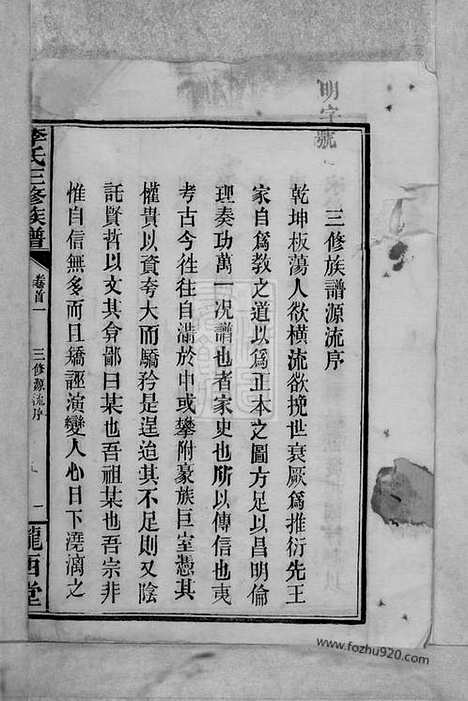 明字號
三修族譜源流序
乾坤板蕩人欲橫流欲挽世衰厥為推衍先王
家自為教之道以為正本之圖方足以昌明倫
理奏功萬一況譜也者家史也所以傳信也夷
考古今徃徃自滿於中或攀附豪族巨室憑其
權貴以資夸大而驕矜是逞迨其不足則又陰
託賢哲以文其弇鄙曰某也吾祖某也吾宗非
惟自信無多而且矯誣演變人心日下澆漓之
李氏三修族譜
卷首一
三修源流序
一
隴西堂
www.fozhu920.com